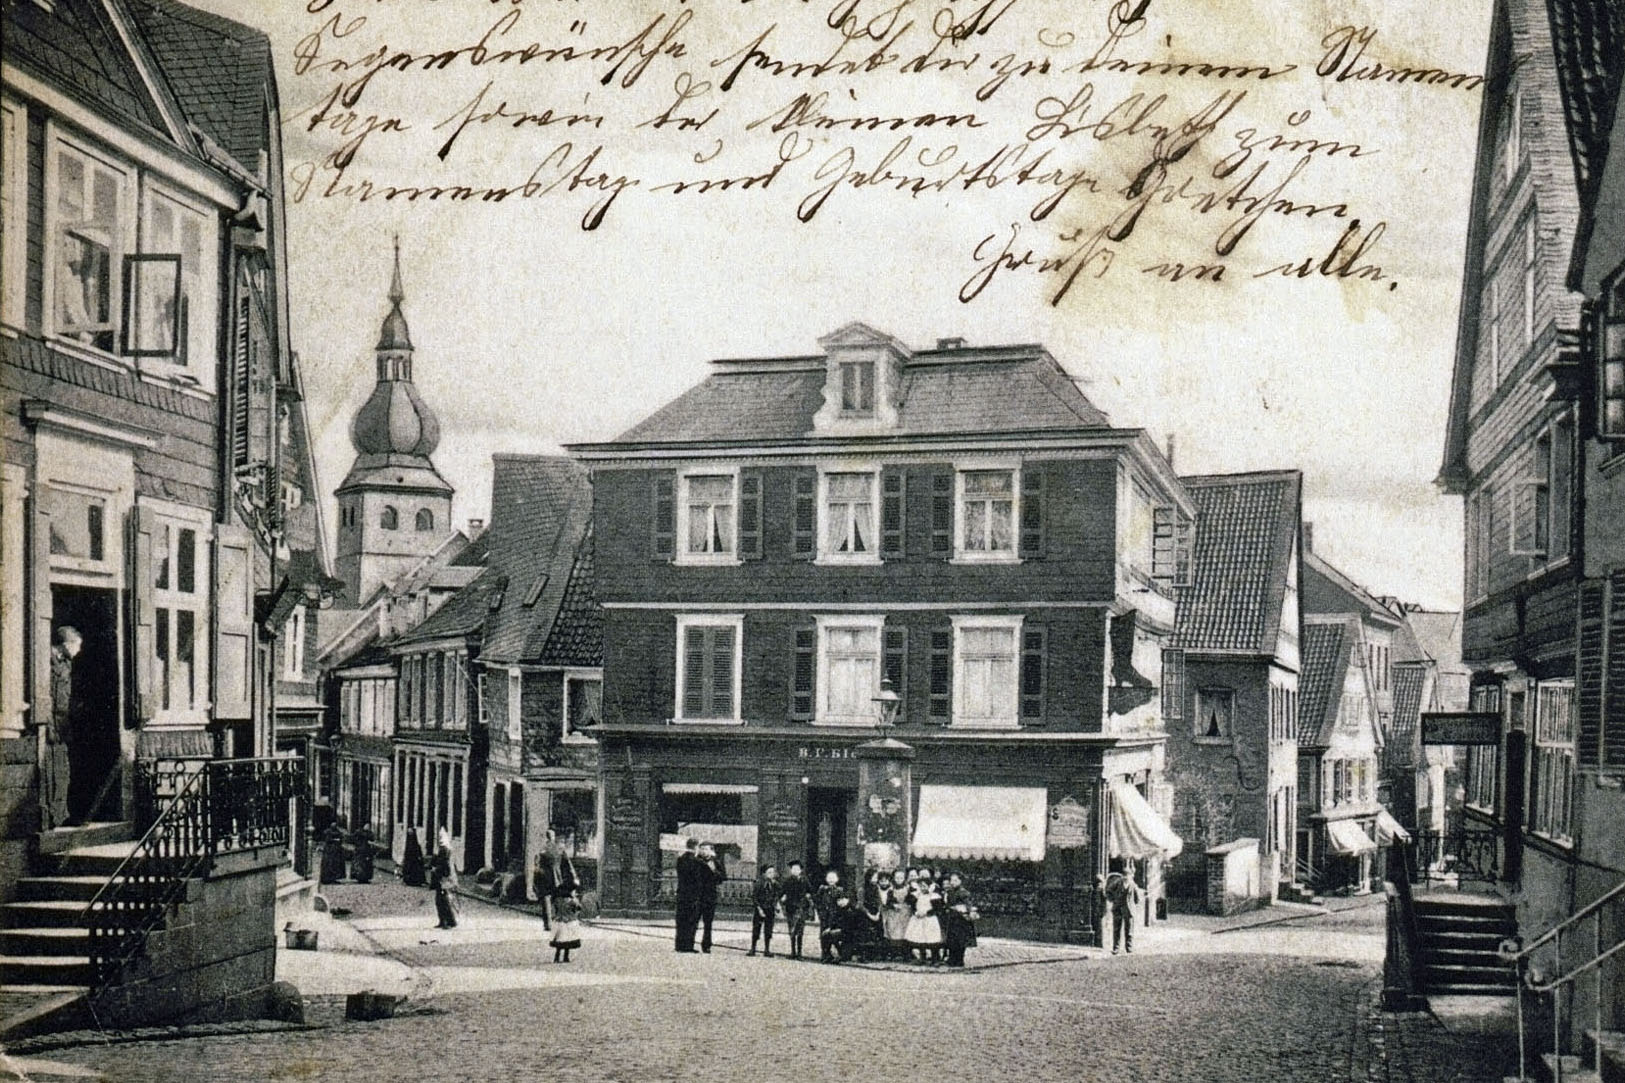 Segenswünsche sendet dir zu deinem Namens
tage sowie der kleinen Lisbeth zum
Namenstag und Geburtstage Gretchen.
Gruß an alle.